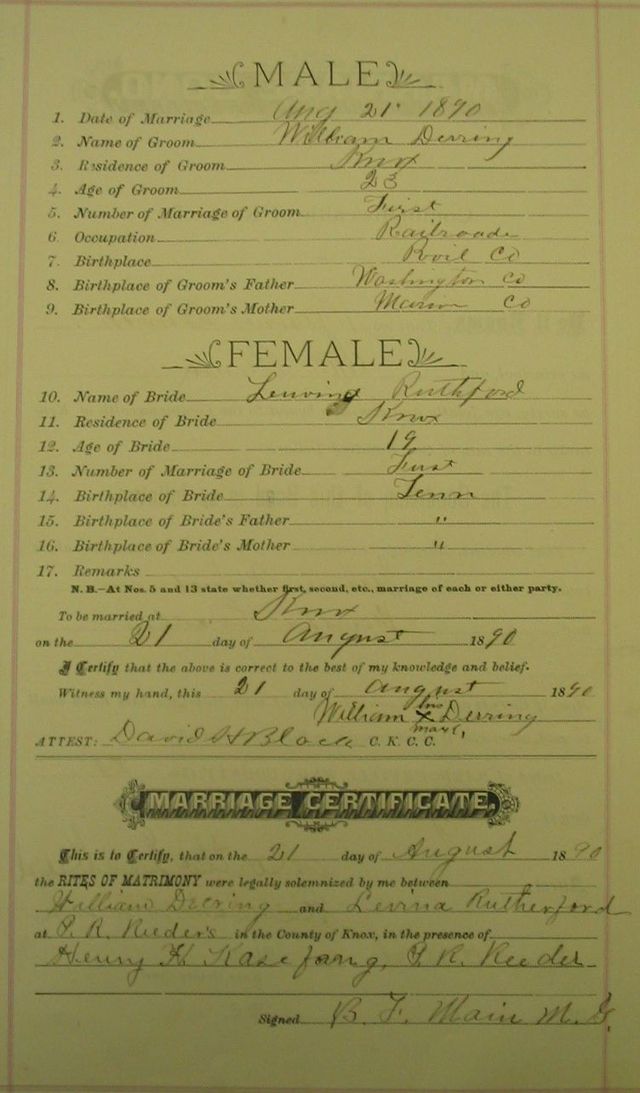 MALE
1. Date of Marriage Aug 21" 1890
2. Name of Groom William Derring
3. Residence of Groom Knox
4. Age of Groom 23
5. Number of Marriage of Groom First
6. Occupation Railroade
7. Birthplace Co
8. Birthplace of Groom's Father Washington Co
9. Birthplace of Groom's Mother Marion Co
FEMALE
10. Name of Bride Ruthford
11. Residence of Bride Knox
12. Age of Bride 19
13. Number of Marriage of Bride First
14. Birthplace of Bride Tenn
15. Birthplace of Bride's Father "
16. Birthplace of Bride's Mother "
17. Remarks
N. B.—At Nos. 5 and 13 state whether first, second, etc., marriage of each or either party.
To be married at Knox
on the 21 day of August 1890
I Certify that the above is correct to the best of my knowledge and belief.
Witness my hand, this 21 day of August 1890
his
William X Derring
mark
ATTEST: David H Black C. K. C. C.
MARRIAGE CERTIFICATE.
This is to Certify, that on the 21 day of August 1890
the RITES OF MATRIMONY were legally solemnized by me between
William Derring and Levina Rutherford
at P. R. Reeder's in the County of Knox, in the presence of
Henry H. P. R. Reeder
Signed B. F. Main M. G.